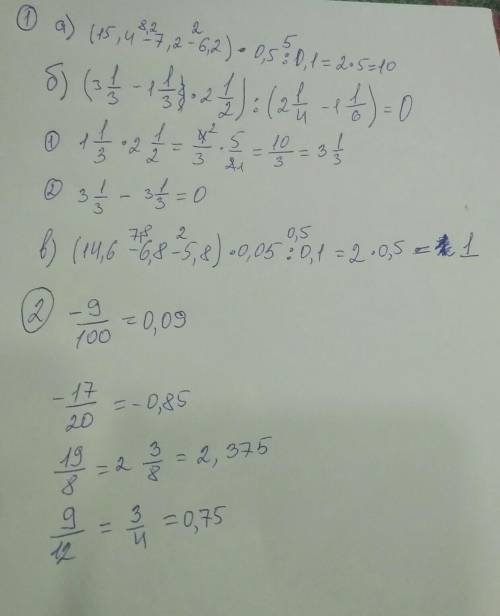 ① а) (15,4 - 7,2 - 6,2) · 0,5 : 0,1 = 2·5=10
8,2 2 5
б) (3 1/3 - 1 1/3 · 2 1/2) : (2 1/4 - 1 1/6) = 0
① 1 1/3 · 2 1/2 = 4/3 · 5/2 = 10/3 = 3 1/3
2 1
② 3 1/3 - 3 1/3 = 0
7,8 2 0,5
в) (14,6 - 6,8 - 5,8) · 0,05 : 0,1 = 2 · 0,5 = 1
② -9/100 = 0,09
-17/20 = -0,85
19/8 = 2 3/8 = 2,375
9/12 = 3/4 = 0,75